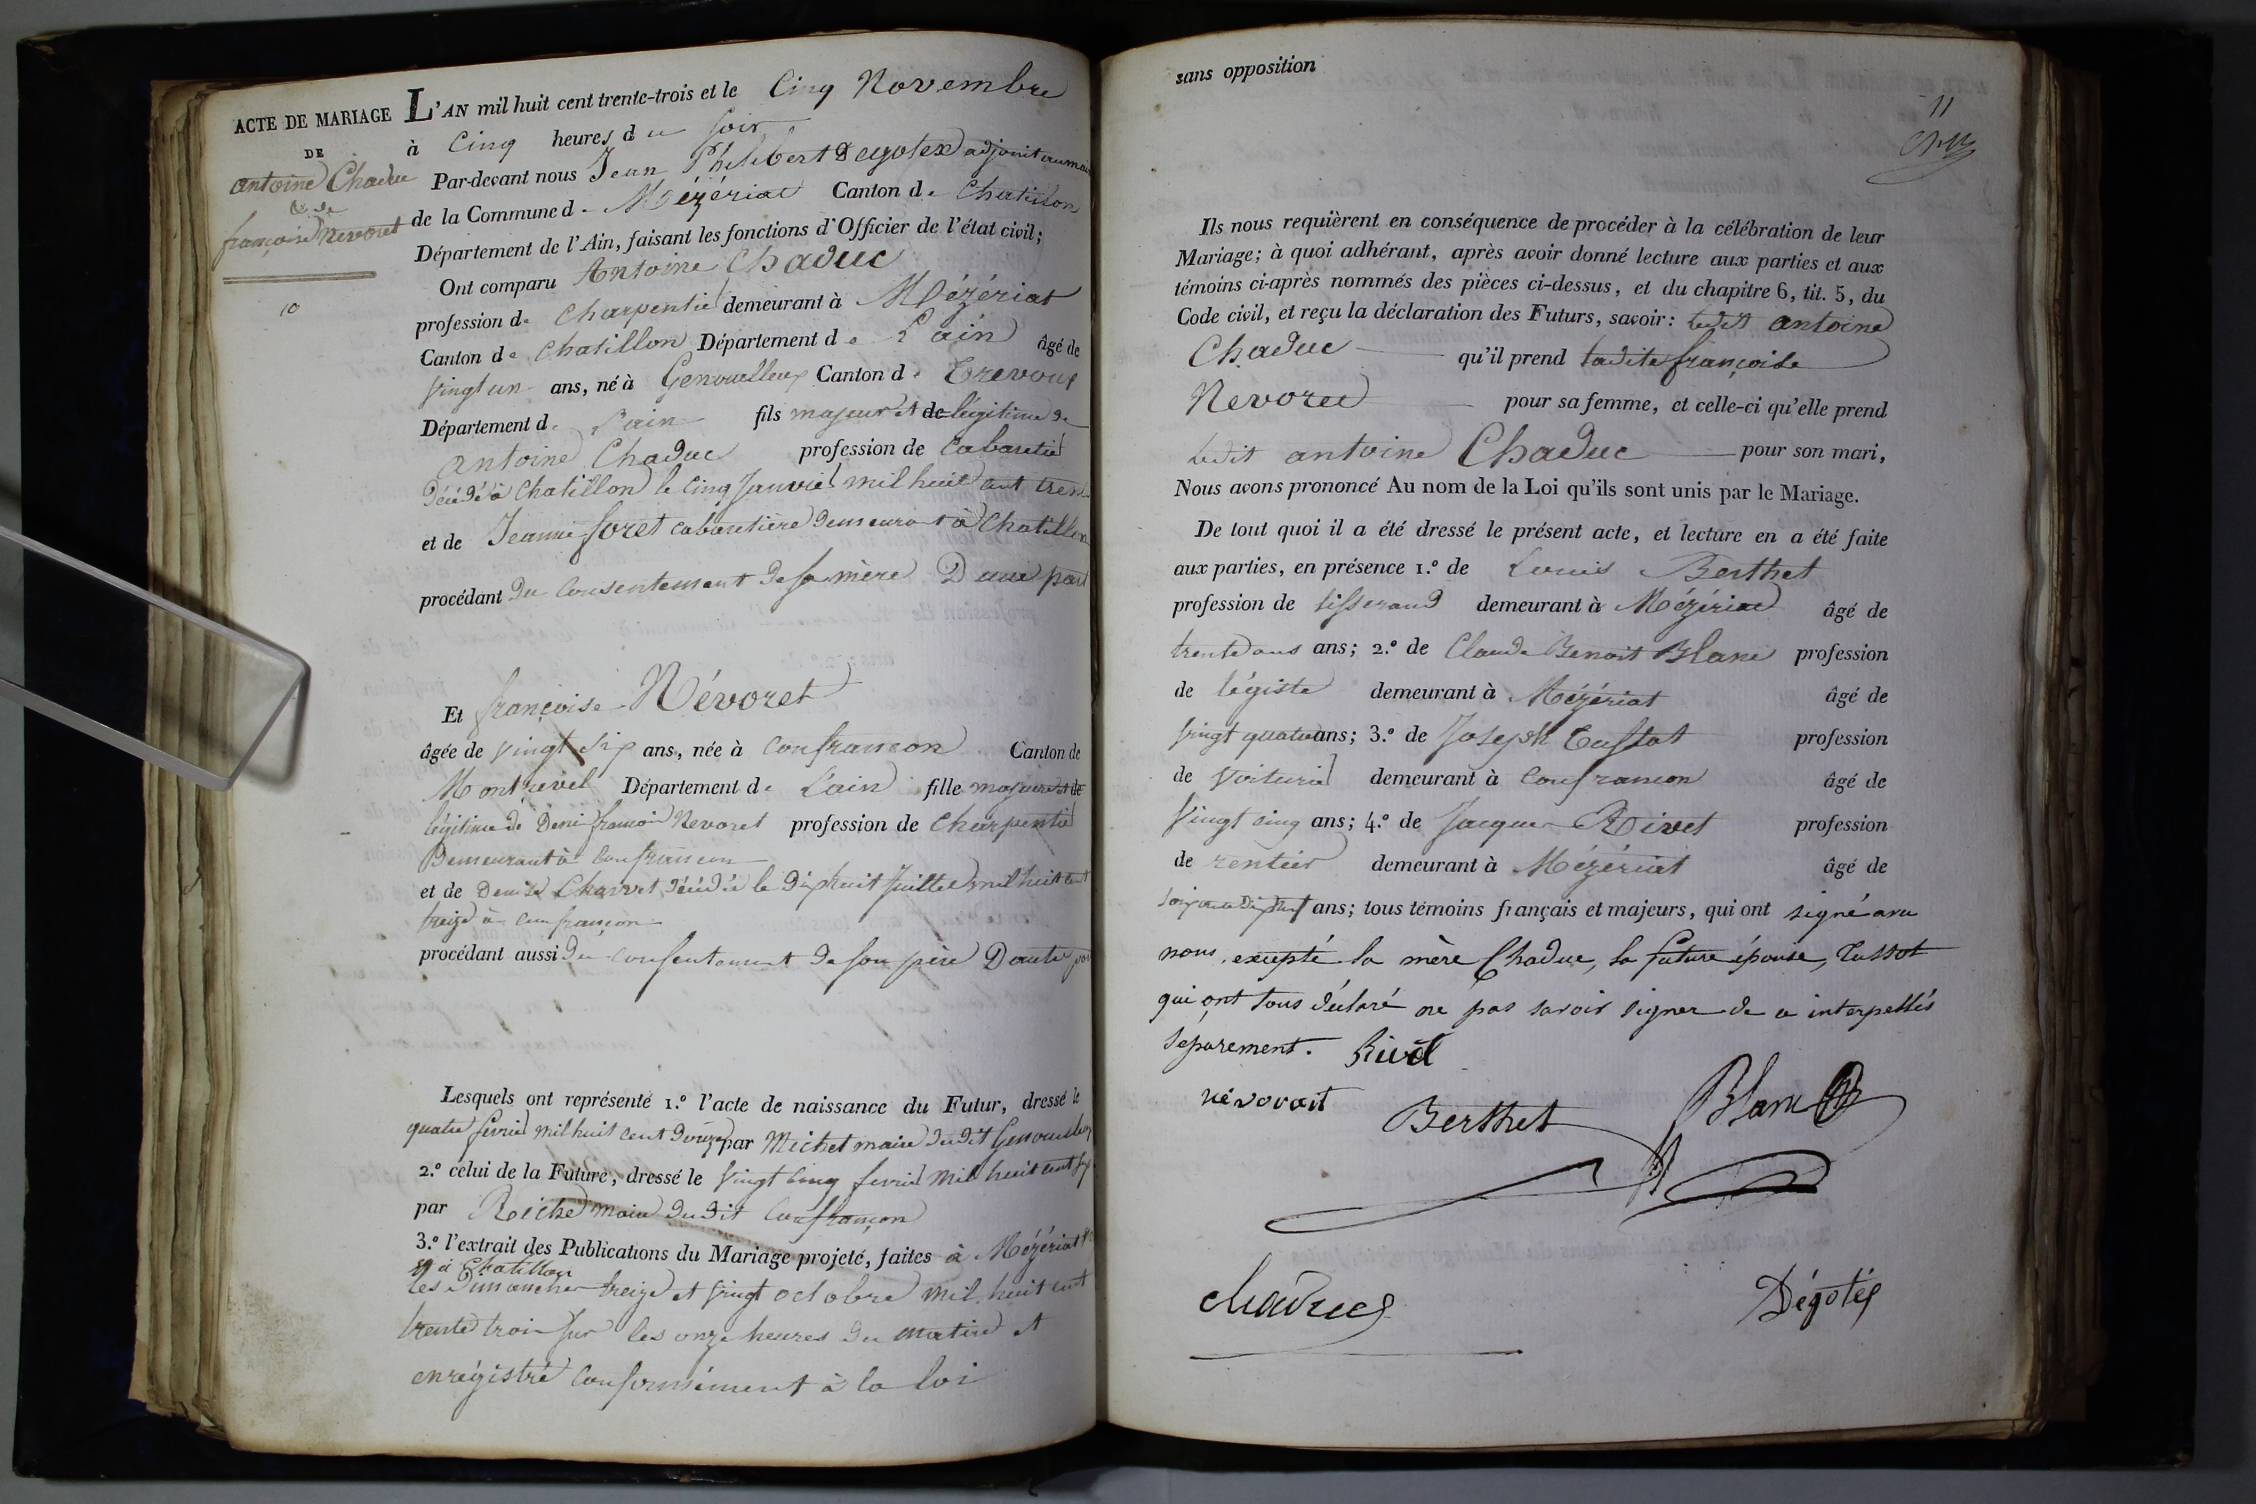 ACTE DE MARIAGE
DE
antoine Chaduc
& de
françoise Nevoret
10
L'AN mil huit cent trente-trois et le Cinq Novembre
à Cinq heures du soir
Par-devant nous Jean Philibert Degotex adjoint au maire
de la Commune de Mézériat Canton de Chatillon
Département de l'Ain, faisant les fonctions d'Officier de l'état civil;
Ont comparu Antoine Chaduc
profession de Charpentier demeurant à Mézériat
Canton de Chatillon Département de L'ain âgé de
vingt un ans, né à Genouilleux Canton de Trevoux
Département de L'ain fils majeur et de légitime de
antoine Chaduc profession de Cabaretier
décédé à Chatillon le cinq Janvier mil huit cent trente
et de Jeanne foret cabaretière demeurant à Chatillon
procédant du consentement de sa mère D'une part
Et françoise Névoret
âgée de vingt six ans, née à Confrancon Canton de
Montrevel Département de L'ain fille majeure et de
légitime de Deni françois Nevoret profession de Charpentier
Demeurant à Confrancon
et de Denise Charvet décédée le dix huit Juillet mil huit cent
treize à Confrançon
procédant aussi du consentement de son père D'autre part
Lesquels ont représenté 1.º l'acte de naissance du Futur, dressé le
quatre fevrier mil huit cent douze par Michet maire dudit Genouilleux
2.º celui de la Future, dressé le vingt cinq fevrier mil huit cent sept
par Reiche maire dudit Confrançon
3.º l'extrait des Publications du Mariage projeté, faites à Mézériat
et à Chatillon
les dimanches treize et vingt octobre mil huit cent
trente trois sur les onze heures du matin et
enrégistré conformément à la loi
sans opposition
11
Ils nous requièrent en conséquence de procéder à la célébration de leur
Mariage; à quoi adhérant, après avoir donné lecture aux parties et aux
témoins ci-après nommés des pièces ci-dessus, et du chapitre 6, tit. 5, du
Code civil, et reçu la déclaration des Futurs, savoir: ledit antoine
Chaduc qu'il prend ladite françoise
Nevoret pour sa femme, et celle-ci qu'elle prend
ledit antoine Chaduc pour son mari,
Nous avons prononcé Au nom de la Loi qu'ils sont unis par le Mariage.
De tout quoi il a été dressé le présent acte, et lecture en a été faite
aux parties, en présence 1.º de Louis Berthet
profession de tisserand demeurant à Mézériat âgé de
trente ans ans; 2.º de Claude Benoit Blanc profession
de légiste demeurant à Mézériat âgé de
vingt quatre ans; 3.º de Joseph Tussot profession
de voiturier demeurant à Confrancon âgé de
vingt cinq ans; 4.º de Jacques Rivet profession
de rentier demeurant à Mézériat âgé de
soixante dix neuf ans; tous témoins français et majeurs, qui ont signé avec
nous, excepté la mère Chaduc, la future épouse, Tussot
qui ont tous déclaré ne pas savoir signer de ce interpellés
séparement. Rivet
névorait
Berthet
Blanc
Chaduc
Dégotex